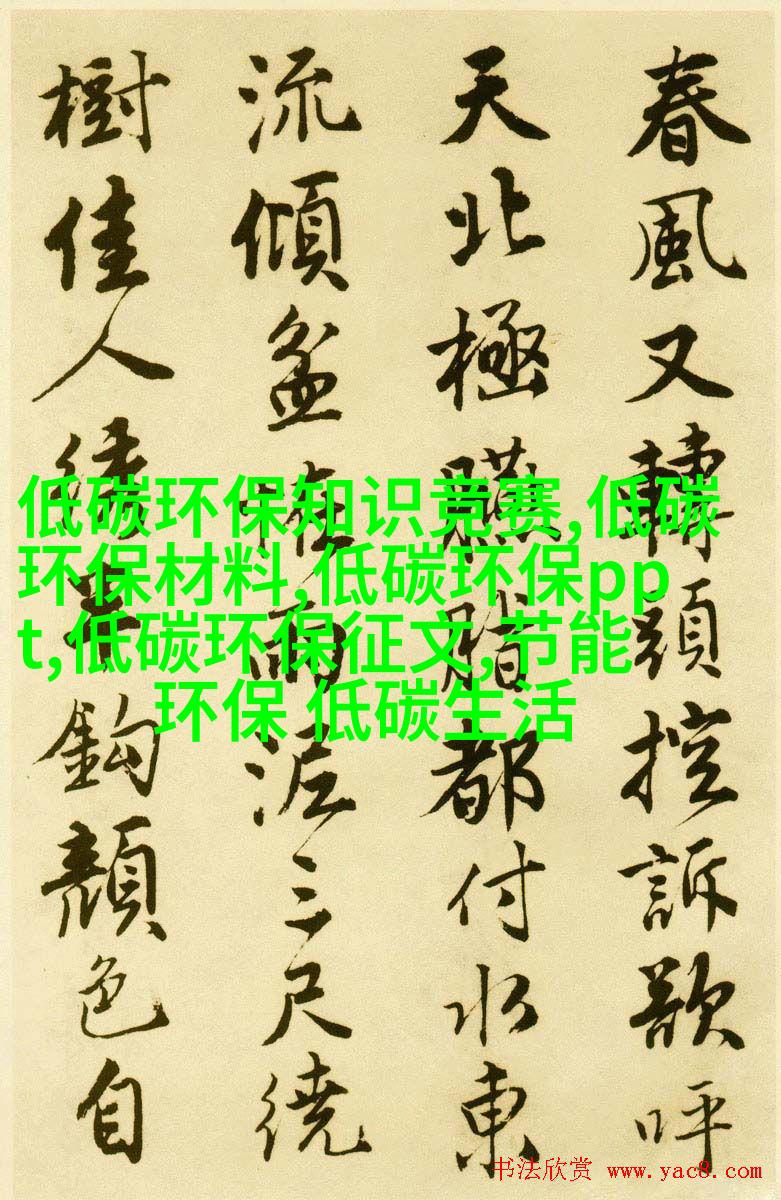 春風又轉頭控訴欲呼
天北極臙脂都付水東
流傾盆怪雨泥三尺繞
樹佳人繡半鈎顏色自
低碳环保知识竞赛,低碳
环保材料,低碳环保pp
t,低碳环保征文,节能
环保 低碳生活
书法欣赏 www.yac8.com